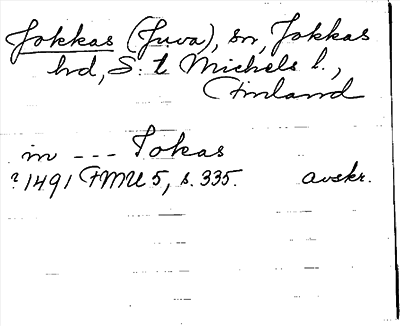 Jokkas (Juva), sn, Jokkas
hd, S:t Michels l.,
Finland
in --- Jokas
?1491 FMU 5, s. 335. avskr.